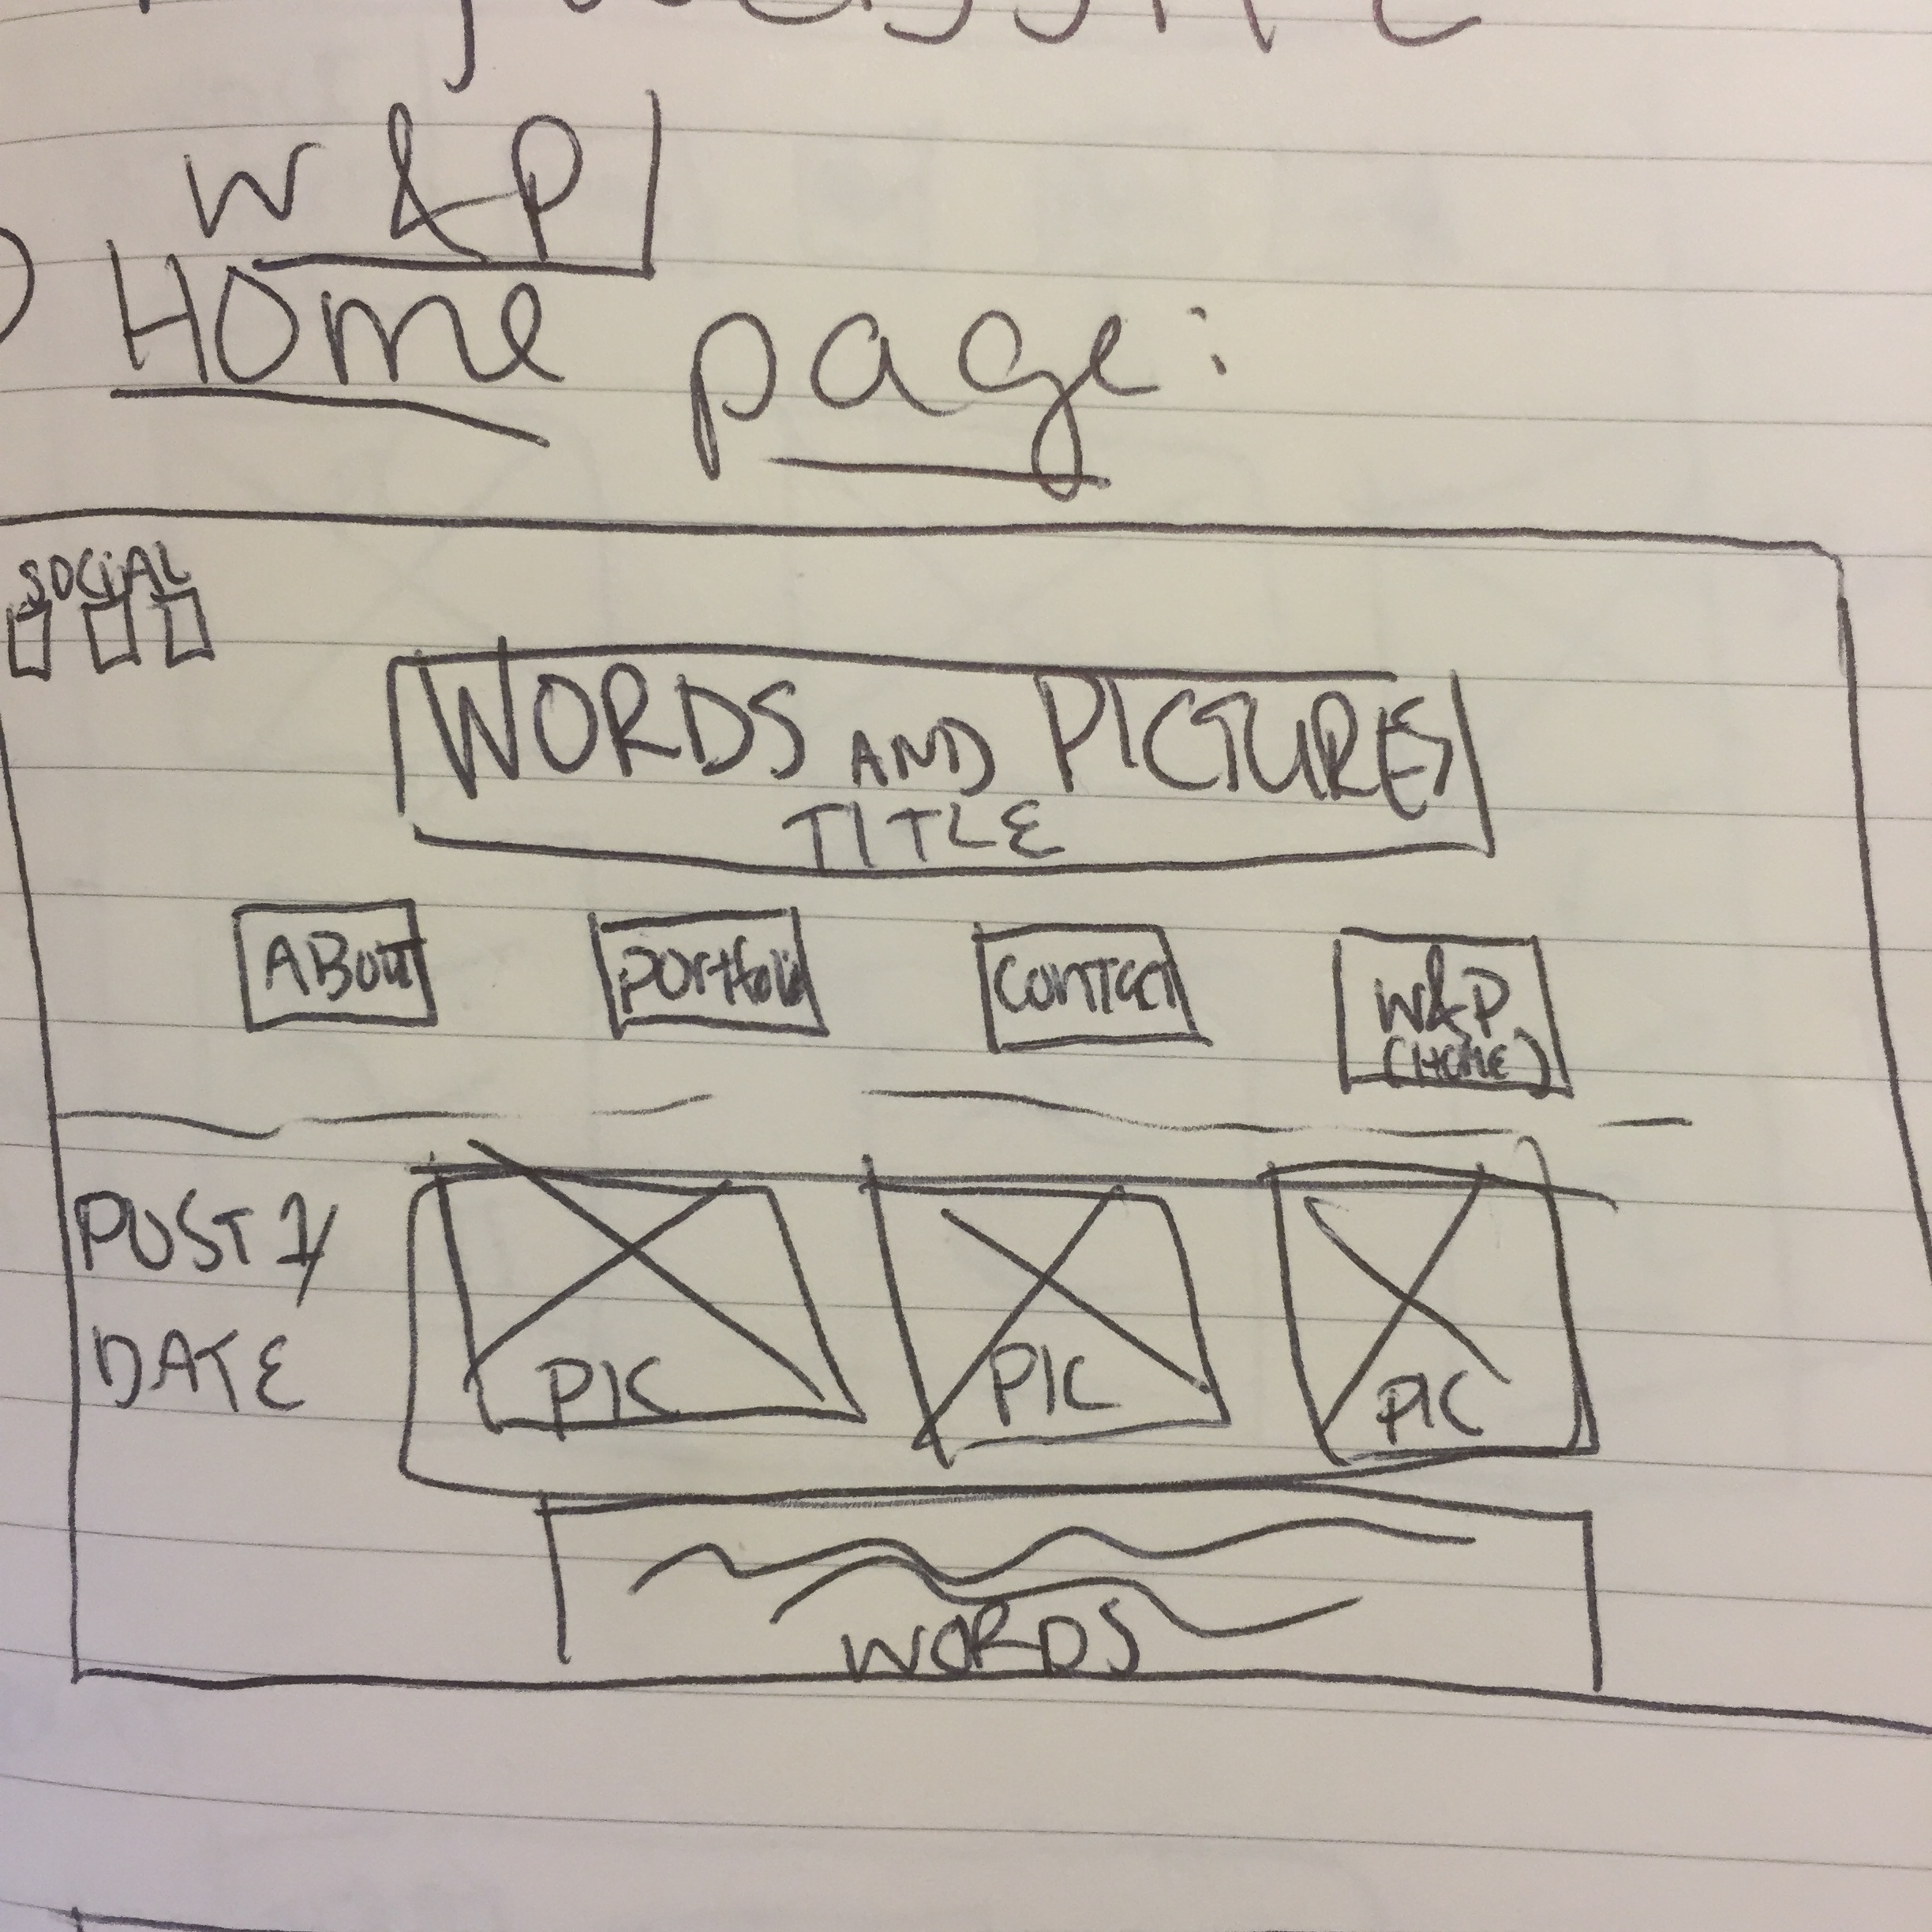 W & P
Home page:
SOCIAL
WORDS AND PICTURES
TITLE
ABOUT
Portfolio
Contact
W&P
(HOME)
POST 1/
DATE
PIC
PIC
PIC
WORDS